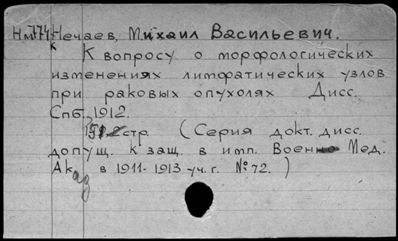 Нечаев, Михаил Васильевич.
К вопросу о морфологических
изменениях лимфатических узлов
при раковых опухолях Дисс.
Спб., 1912.
стр. (Серия докт. дисс.
допущ. к защ. в имп. Военно Мед.
Акад в 1911-1913 уч. г. №72.)